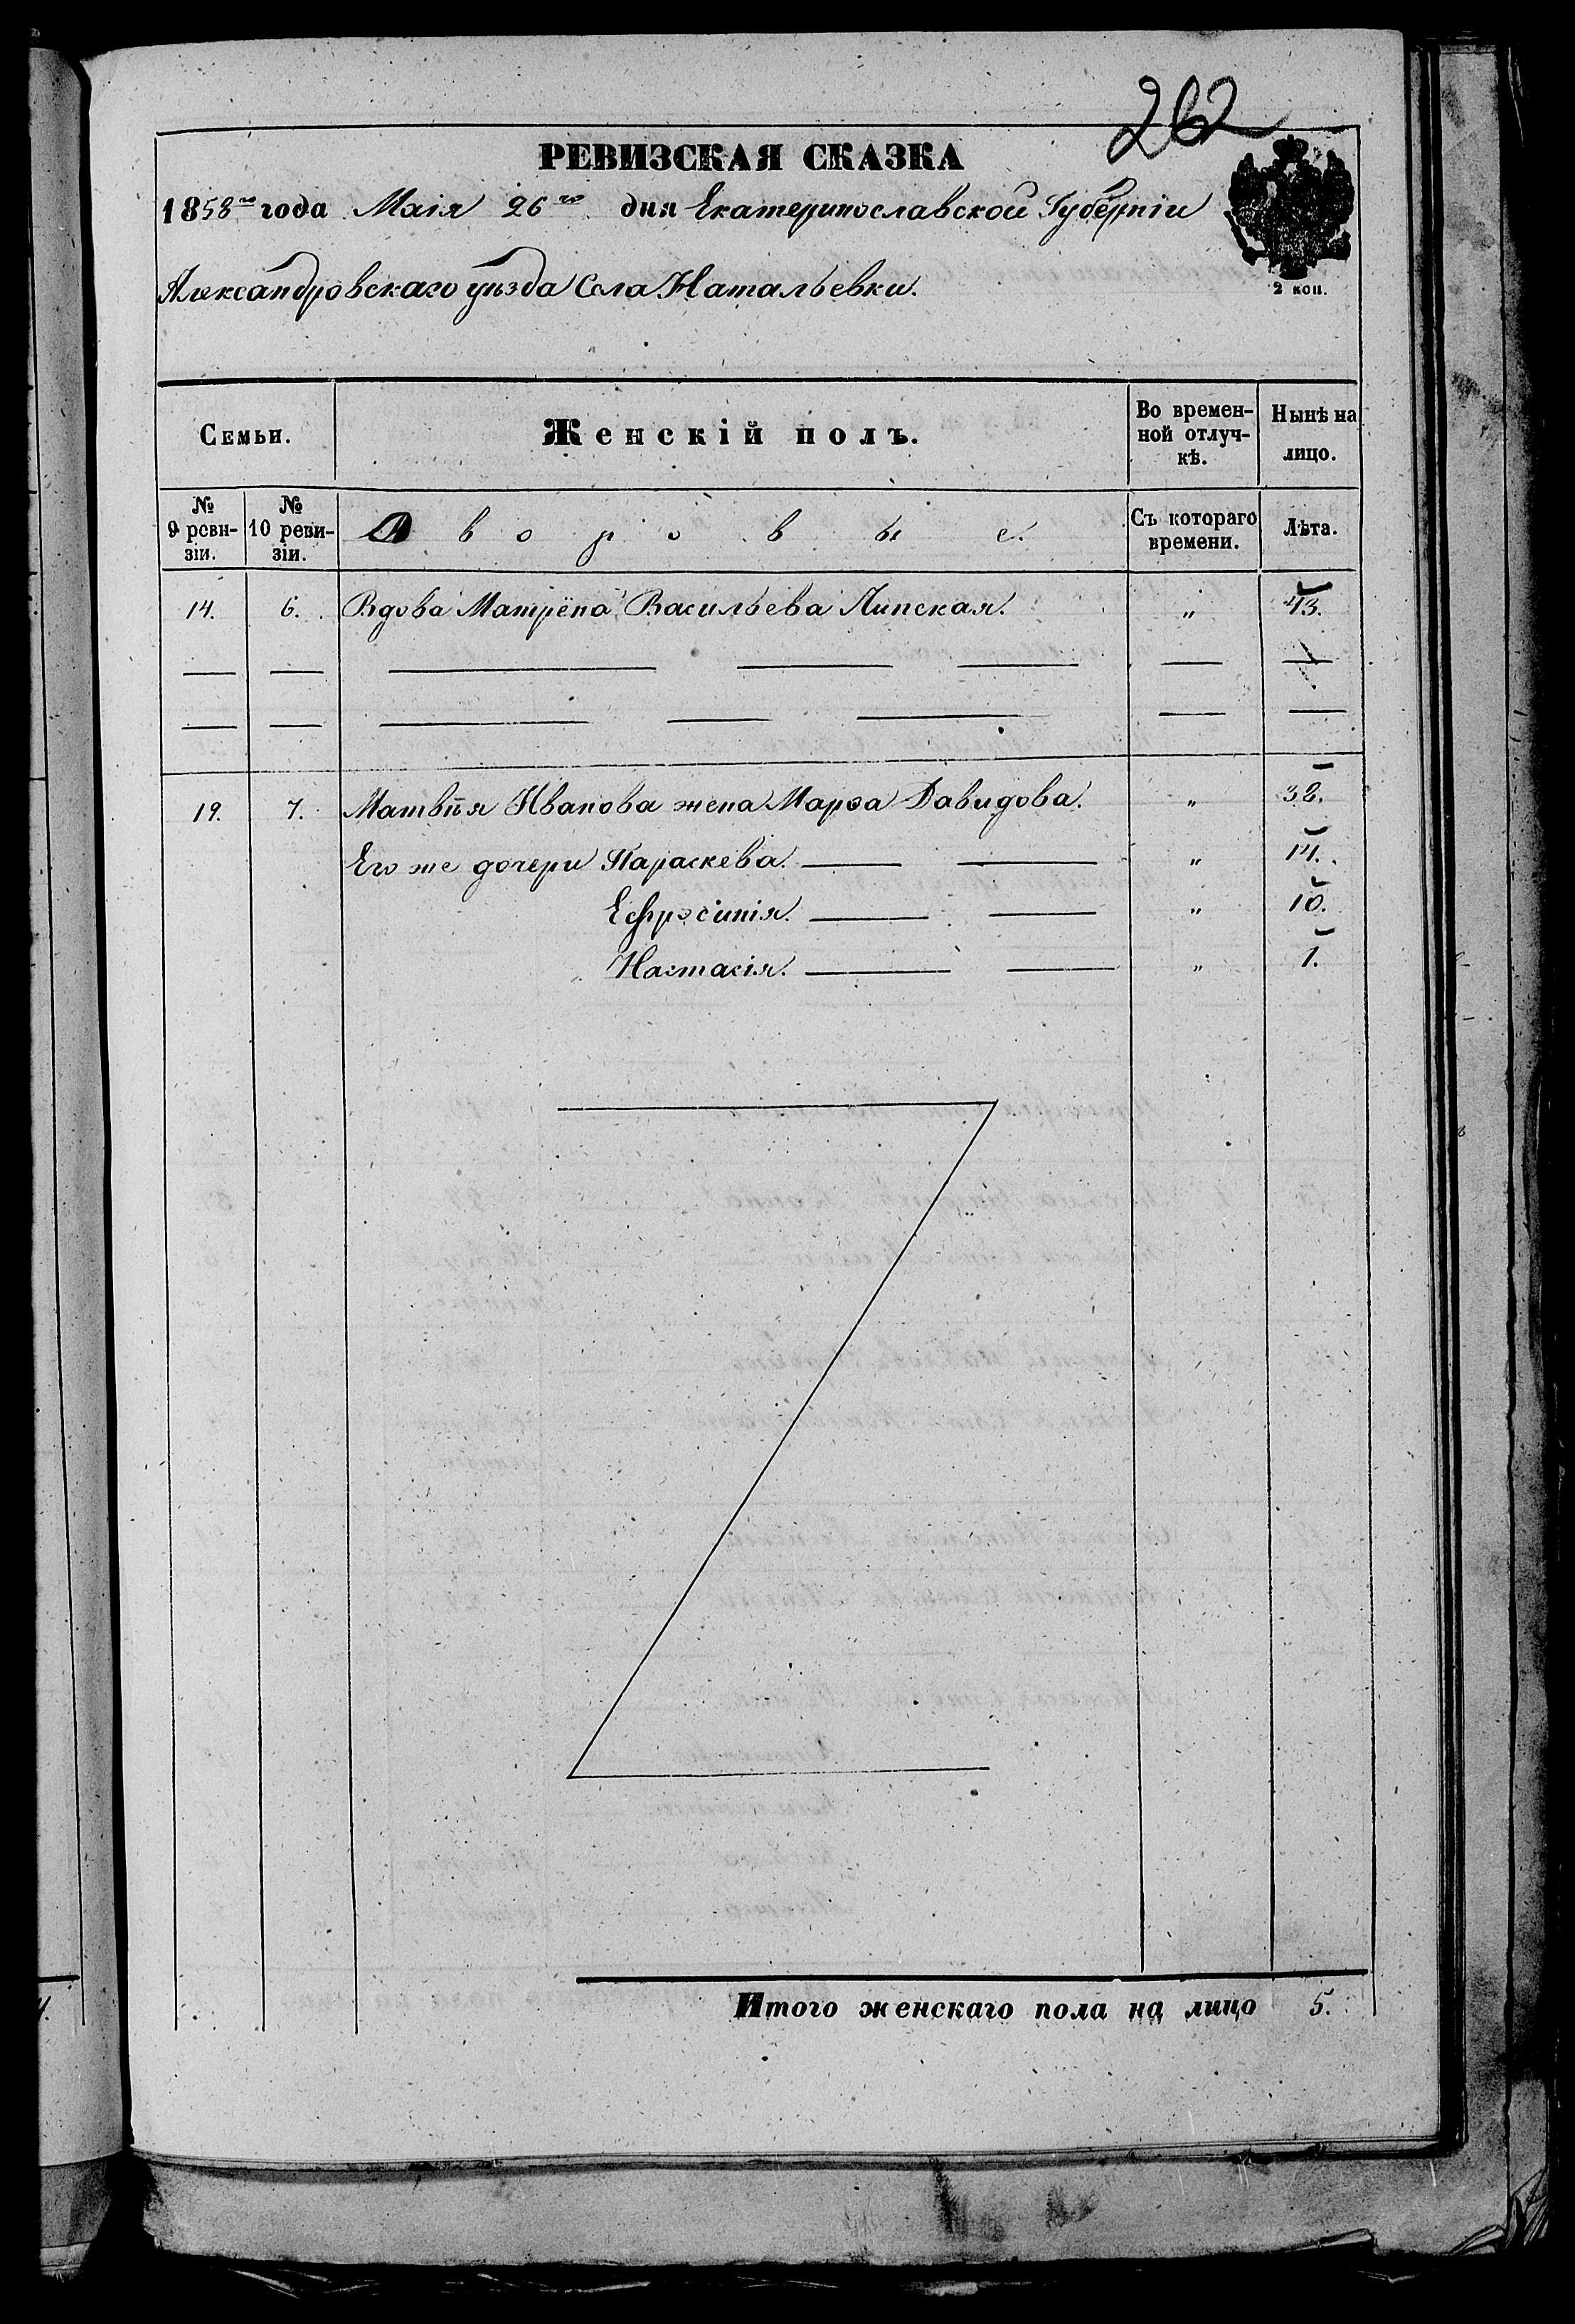 262
РЕВИЗСКАЯ СКАЗКА
1858го года Маія 26го дня Екатеринославской Губерніи
Александровскаго уѣзда Села Натальевки.
2 коп.
Семьи. Женскій полъ. Во времен- Нынѣ на
ной отлуч- лицо.
кѣ.
№ № Дворовые. Съ котораго Лѣта.
9 реви- 10 реви- времени.
зіи. зіи.
14. 6. Вдова Матрёна Васильева Липская. „ 43.
19. 7. Матвѣя Иванова жена Марѳа Давидова. „ 32.
Его же дочери Параскева. „ 14.
Ефросинія. „ 10.
Настасія. „ 1.
Итого женскаго пола на лицо 5.